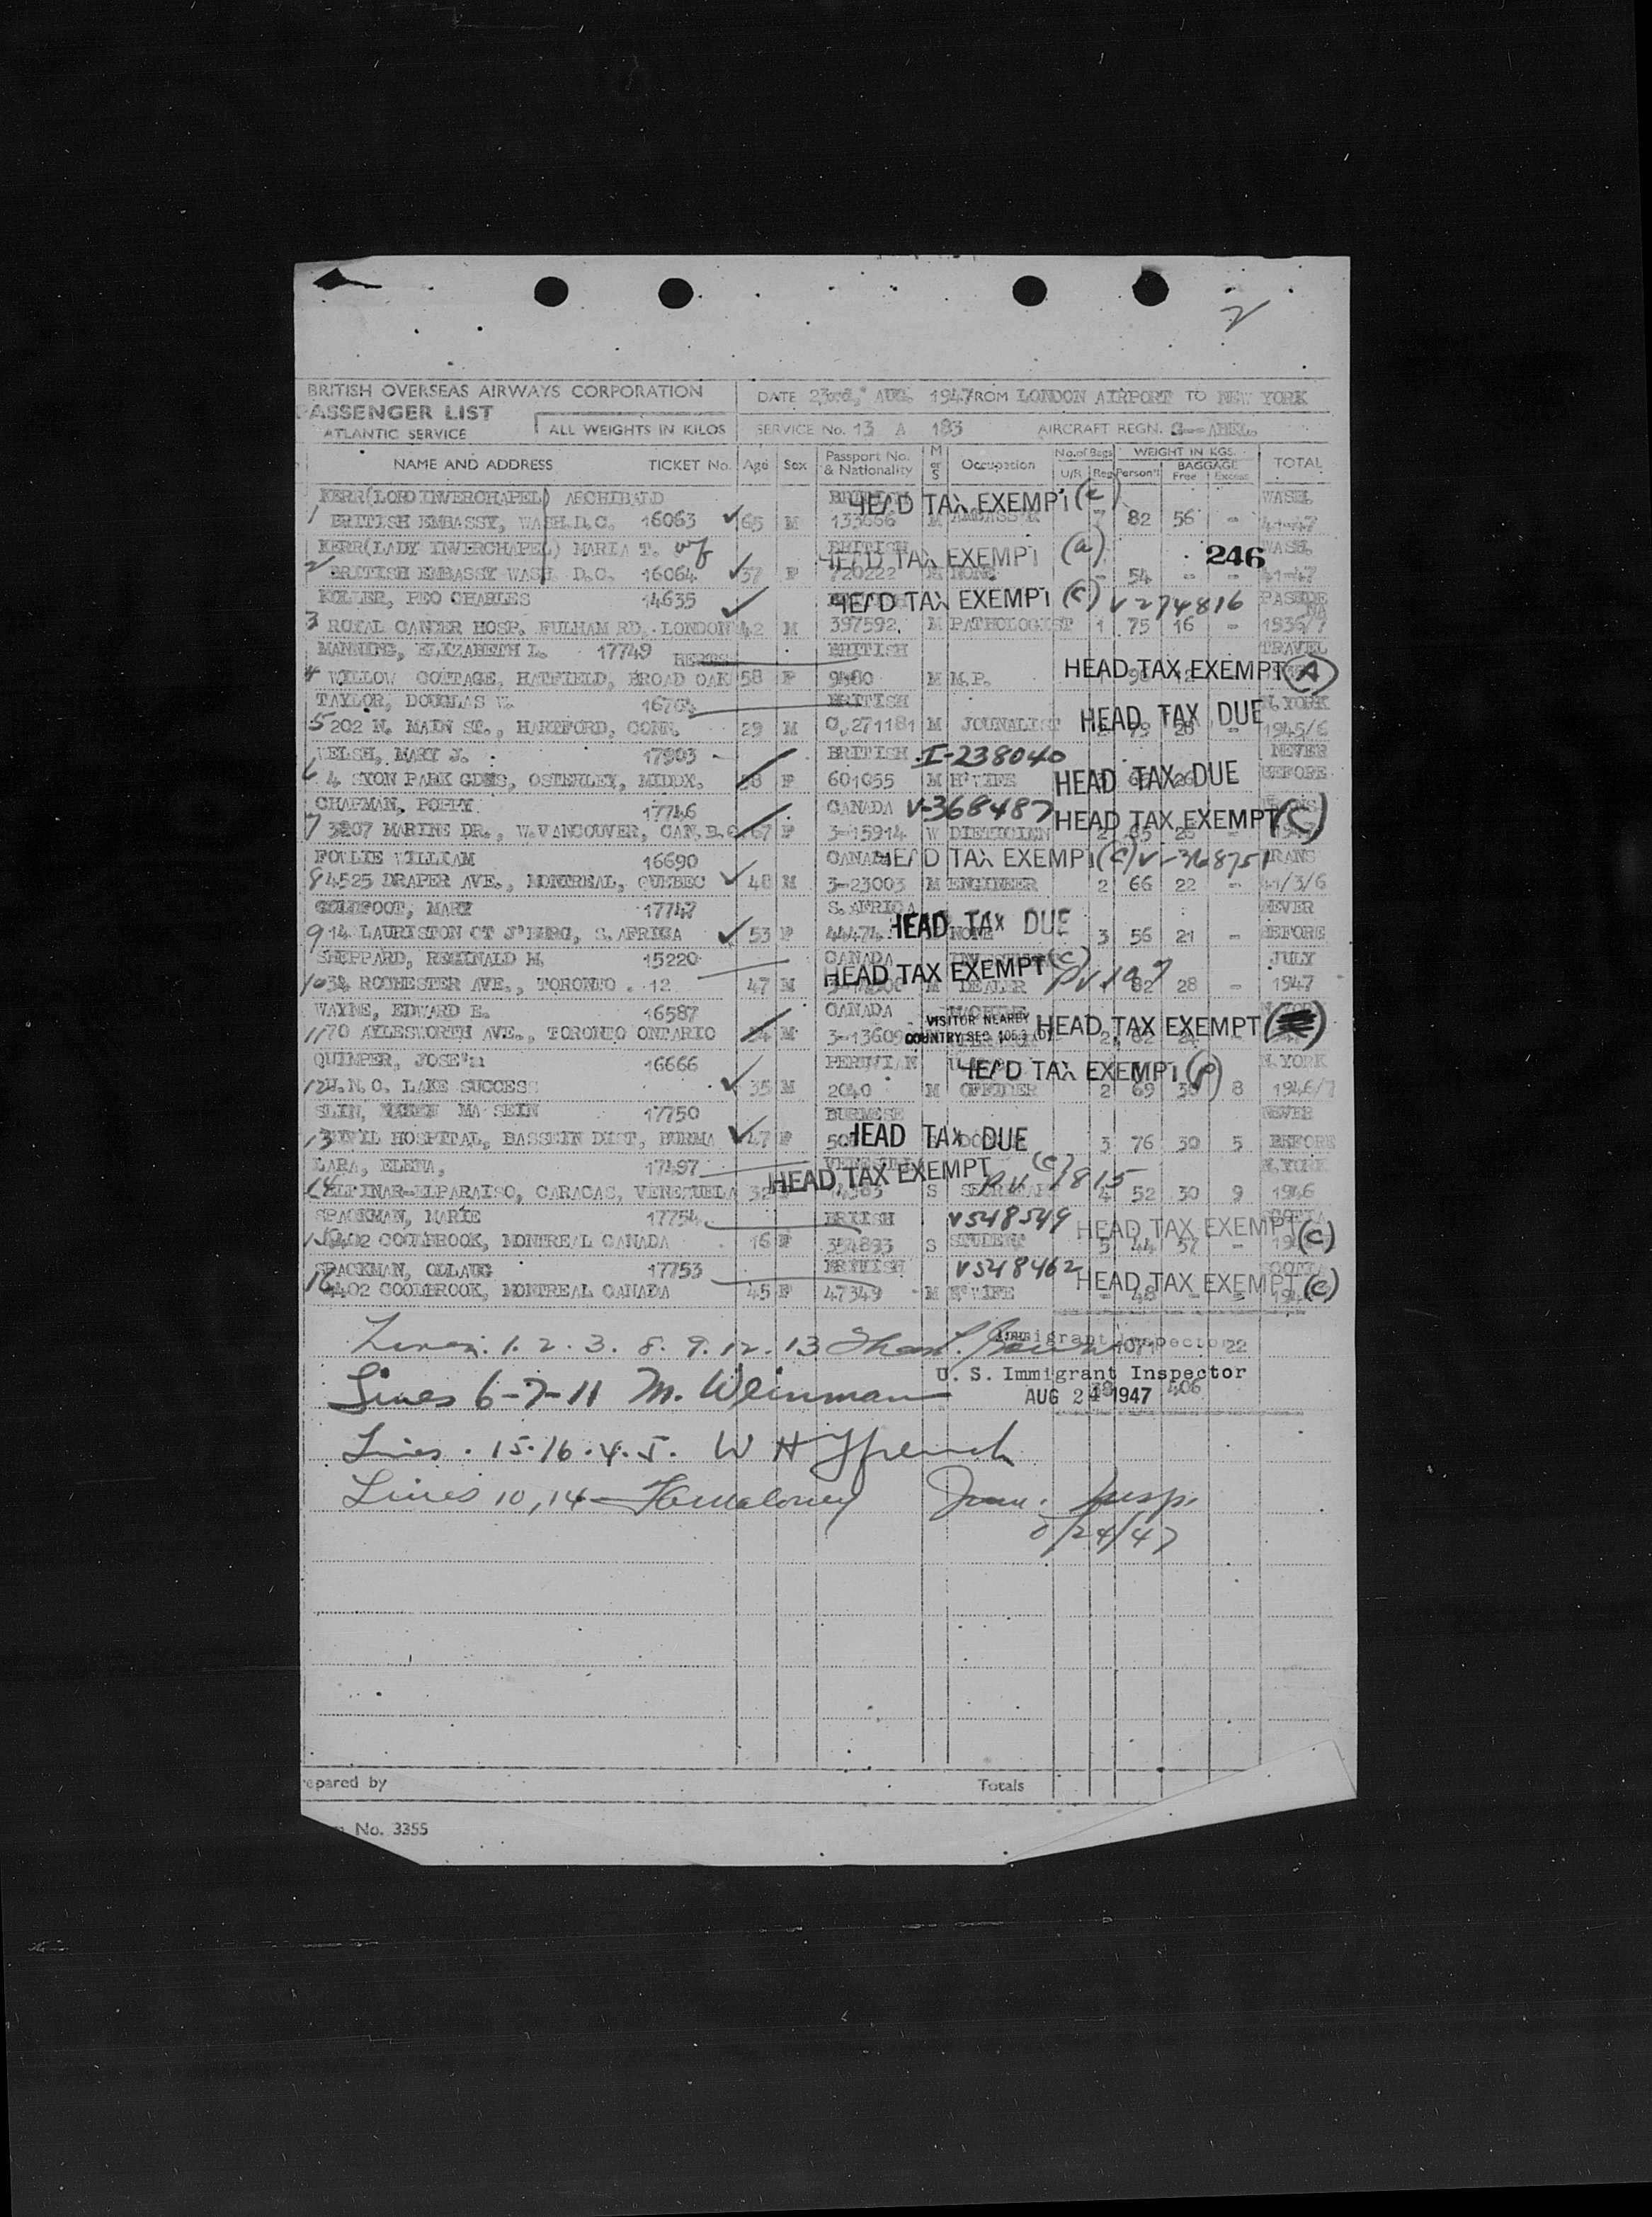 2
BRITISH OVERSEAS AIRWAYS CORPORATION
PASSENGER LIST
ATLANTIC SERVICE
ALL WEIGHTS IN KILOS
DATE 23rd, AUG. 1947 FROM LONDON AIRPORT TO NEW YORK
SERVICE No. 13 A 183 AIRCRAFT REGN.
NAME AND ADDRESS TICKET No. Age Sex Passport No. & Nationality M or S Occupation No. of Bags U/R Reg WEIGHT IN KGS. Person'l BAGGAGE Free Excess TOTAL
KERR (LORD INVERCHAPEL) ARCHIBALD BRITISH HEAD TAX EXEMPT (c) WASH.
1 BRITISH EMBASSY, WASH.D.C. 16063 65 M 133666 M 7 82 56 - 41-47
KERR (LADY INVERCHAPEL) MARIA T. wf BRITISH HEAD TAX EXEMPT (a) 246 WASH.
2 BRITISH EMBASSY WASH D.C. 16064 37 F 720222 M NONE - 54 - - 41-47
CHARLES 14635 HEAD TAX EXEMPT (c) V274816 PASEDE NA
3 ROYAL CANCER HOSP. FULHAM RD. LONDON 42 M 397592. M PATHOLOGIST 1 75 16 - 1936/7
MANNING, ELIZABETH L. 17749 HERTS BRITISH TRAVEL
4 WILLOW COTTAGE, HATFIELD, BROAD OAK 58 F 9480 M M.P. HEAD TAX EXEMPT (A)
TAYLOR, DOUGLAS W. 16704 BRITISH N.YORK
5 202 N. MAIN ST., HARTFORD, CONN. 29 M O.271181 M JOUNALIST HEAD TAX DUE 1945/6
WELSH, MARY J. 17903 BRITISH I-238040 NEVER
6 4 SYON PARK GDNS, OSTERLEY, MIDDX. F 601055 M H'WIFE HEAD TAX DUE BEFORE
CHAPMAN, POPPY 17746 CANADA V-368487
7 3207 MARINE DR., W.VANCOUVER, CAN. B.C. 67 F 3-15914 W DIETICIAN HEAD TAX EXEMPT (C)
FOWLIE WILLIAM 16690 CANADA HEAD TAX EXEMPT (C) V-368751 TRANS
8 4525 DRAPER AVE., MONTREAL, QUEBEC 48 M 3-23003 M ENGINEER 2 66 22 - 41/3/6
GOLDFOOT, MARY 17747 S.AFRICA NEVER
9 14 LAURISTON CT J'BURG, S.AFRICA 53 F 44474 HEAD TAX DUE NONE 3 56 21 - BEFORE
SHEPPARD, REGINALD M. 15220 CANADA JULY
10 34 ROCHESTER AVE., TORONTO . 12 47 M HEAD TAX EXEMPT (C) M DEALER 82 28 - 1947
WAYNE, EDWARD E. 16587 CANADA
11 70 AYLESWORTH AVE., TORONTO ONTARIO M 3-13609 VISITOR NEARBY COUNTRY SEC. HEAD TAX EXEMPT
QUIMPER, 16666 PERUVIAN N.YORK
12 U.N.O. LAKE SUCCESS 35 M 2040 M OFFICER HEAD TAX EXEMPT 2 69 8 1946/7
MA SEIN 17750 BURMESE NEVER
13 CIVIL HOSPITAL, BASSEIN DIST, BURMA 47 F HEAD TAX DUE 3 76 30 5 BEFORE
LARA, ELENA, 17497 N.YORK
14 ALTINAR-ELPARAISO, CARACAS, VENEZUELA 32 HEAD TAX EXEMPT (C) S 4 52 30 9 1946
SPACKMAN, MARIE 17754 BRITISH V548549
15 4402 COOLBROOK, MONTREAL CANADA 16 F 354893 S STUDENT HEAD TAX EXEMPT (C) 5 44 57 -
SPACKMAN, OLLAUG 17753 BRITISH V548462
16 4402 COOLBROOK, MONTREAL CANADA 45 F 47349 M H'WIFE HEAD TAX EXEMPT (C) - 48 -
Lines. 1. 2. 3. 8. 9. 12. 13 Immigrant Inspector 22
Lines 6-7-11 M. Weinman U. S. Immigrant Inspector
AUG 24 1947 406
Lines. 15. 16. 4. 5. W H
Lines 10, 14 Imm. Insp.
8/24/47
epared by Totals
No. 3355